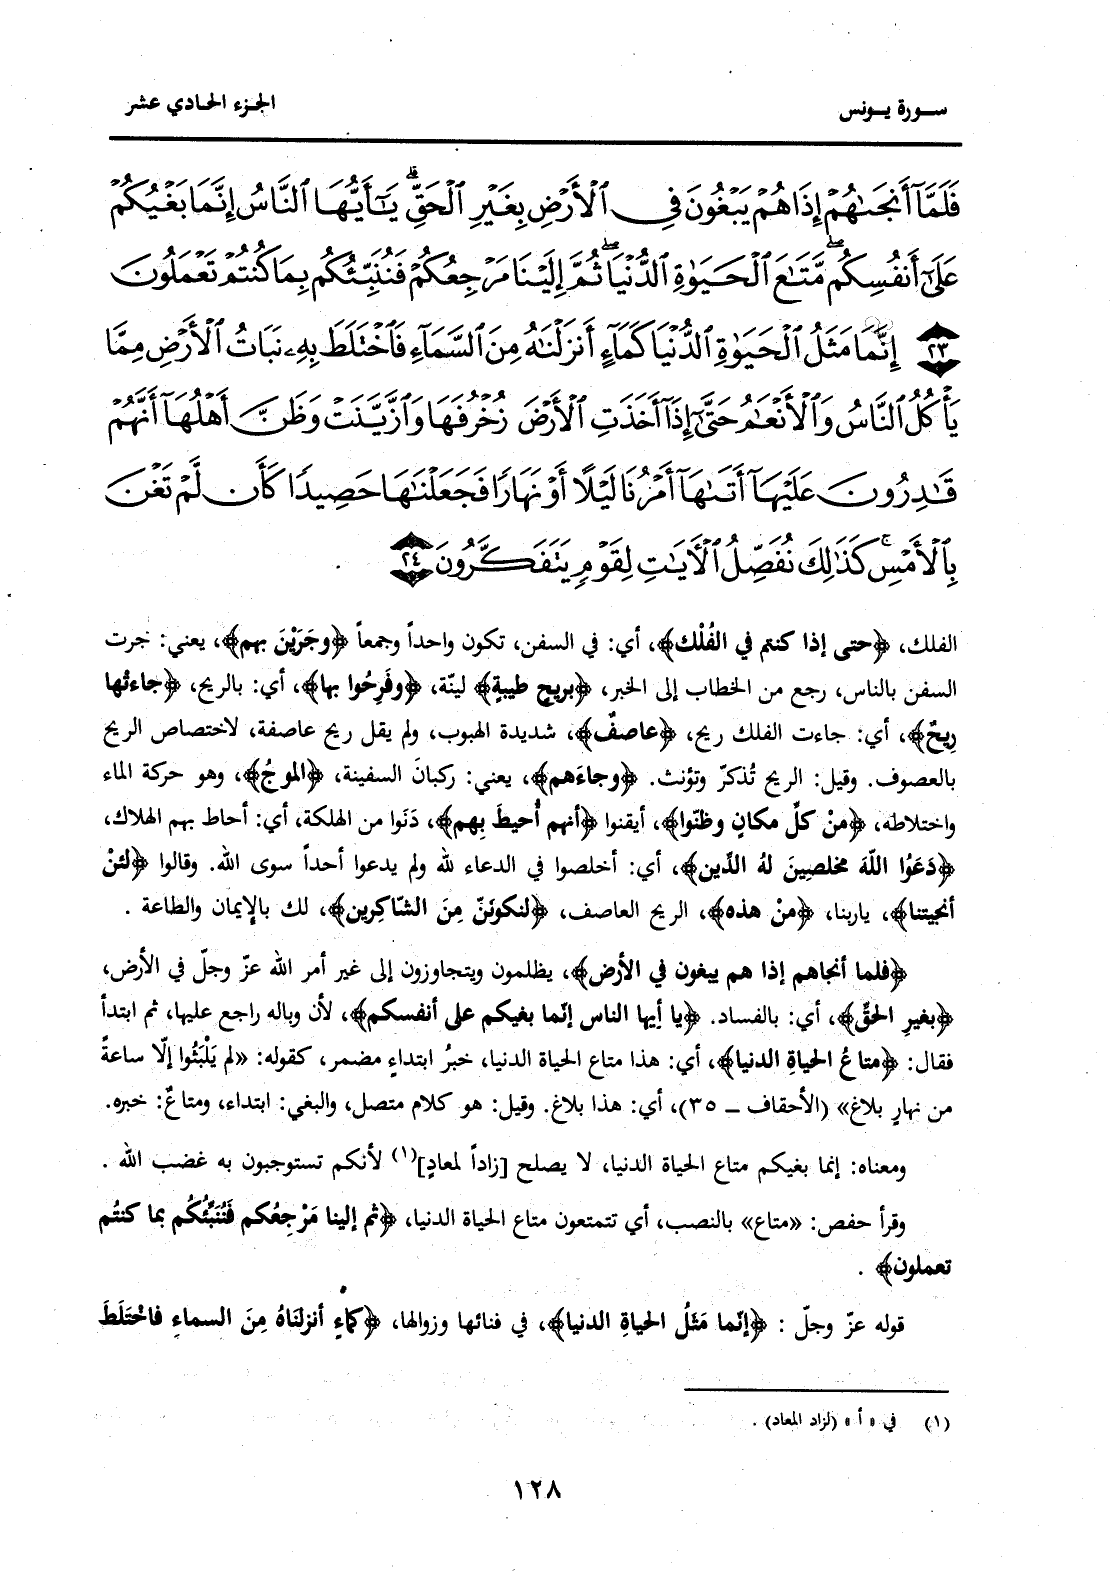 سورة يونس
الجزء الحادي عشر
فَلَمَّآ أَنجَىٰهُمْ إِذَا هُمْ يَبْغُونَ فِى ٱلْأَرْضِ بِغَيْرِ ٱلْحَقِّ ۗ يَـٰٓأَيُّهَا ٱلنَّاسُ إِنَّمَا بَغْيُكُمْ
عَلَىٰٓ أَنفُسِكُم ۖ مَّتَـٰعَ ٱلْحَيَوٰةِ ٱلدُّنْيَا ۖ ثُمَّ إِلَيْنَا مَرْجِعُكُمْ فَنُنَبِّئُكُم بِمَا كُنتُمْ تَعْمَلُونَ
﴿٢٣﴾ إِنَّمَا مَثَلُ ٱلْحَيَوٰةِ ٱلدُّنْيَا كَمَآءٍ أَنزَلْنَـٰهُ مِنَ ٱلسَّمَآءِ فَٱخْتَلَطَ بِهِۦ نَبَاتُ ٱلْأَرْضِ مِمَّا
يَأْكُلُ ٱلنَّاسُ وَٱلْأَنْعَـٰمُ حَتَّىٰٓ إِذَآ أَخَذَتِ ٱلْأَرْضُ زُخْرُفَهَا وَٱزَّيَّنَتْ وَظَنَّ أَهْلُهَآ أَنَّهُمْ
قَـٰدِرُونَ عَلَيْهَآ أَتَىٰهَآ أَمْرُنَا لَيْلًا أَوْ نَهَارًا فَجَعَلْنَـٰهَا حَصِيدًا كَأَن لَّمْ تَغْنَ
بِٱلْأَمْسِ ۚ كَذَٰلِكَ نُفَصِّلُ ٱلْـَٔايَـٰتِ لِقَوْمٍ يَتَفَكَّرُونَ ﴿٢٤﴾
الفلك، ﴿حتى إذا كنتم في الفُلْك﴾، أي: في السفن، تكون واحداً وجمعاً ﴿وجَرَيْنَ بهم﴾، يعني: جرت
السفن بالناس، رجع من الخطاب إلى الخبر، ﴿بريحٍ طيبةٍ﴾ لينّة، ﴿وفَرِحُوا بها﴾، أي: بالريح، ﴿جاءتْها
رِيحٌ﴾، أي: جاءت الفلك ريح، ﴿عاصفٌ﴾، شديدة الهبوب، ولم يقل ريح عاصفة، لاختصاص الريح
بالعصوف. وقيل: الريح تُذكّر وتؤنث. ﴿وجاءَهم﴾، يعني: ركبانَ السفينة، ﴿الموجُ﴾، وهو حركة الماء
واختلاطه، ﴿منْ كلِّ مكانٍ وظنّوا﴾، أيقنوا ﴿أنهم أُحيطَ بِهم﴾، دَنَوا من الهلكة، أي: أحاط بهم الهلاك،
﴿دَعَوُا اللّهَ مخلصِينَ لهُ الدِّين﴾، أي: أخلصوا في الدعاء لله ولم يدعوا أحداً سوى الله. وقالوا ﴿لئنْ
أنجيتنا﴾، ياربنا، ﴿منْ هذه﴾، الريح العاصف، ﴿لنكونَنّ مِنَ الشّاكِرين﴾، لك بالإِيمان والطاعة .
﴿فلما أنجاهم إذا هم يبغون في الأرض﴾، يظلمون ويتجاوزون إلى غير أمر الله عزّ وجلّ في الأرض،
﴿بغيرِ الحقّ﴾، أي: بالفساد. ﴿يا أيها الناس إنّما بغيكم على أنفسكم﴾، لأن وباله راجع عليها، ثم ابتدأ
فقال: ﴿متاعُ الحياةِ الدنيا﴾، أي: هذا متاع الحياة الدنيا، خبرُ ابتداءٍ مضمر، كقوله: «لم يَلْبَثُوا إلّا ساعةً
من نهارٍ بلاغ» (الأحقاف – ٣٥)، أي: هذا بلاغ. وقيل: هو كلام متصل، والبغي: ابتداء، ومتاعٌ: خبره.
ومعناه: إنما بغيكم متاع الحياة الدنيا، لا يصلح [زاداً لمعادٍ](١) لأنكم تستوجبون به غضب الله .
وقرأ حفص: «متاع» بالنصب، أي تتمتعون متاع الحياة الدنيا، ﴿ثم إلينا مَرْجِعُكم فَنُنَبِّئُكُم بما كنتُم
تعملون﴾ .
قوله عزّ وجلّ : ﴿إنّما مَثَلُ الحياةِ الدنيا﴾، في فنائها وزوالها، ﴿كماءٍ أنزلنَاهُ مِنَ السماءِ فاخْتَلَطَ
(١) في «أ» (لزاد المعاد) .
١٢٨